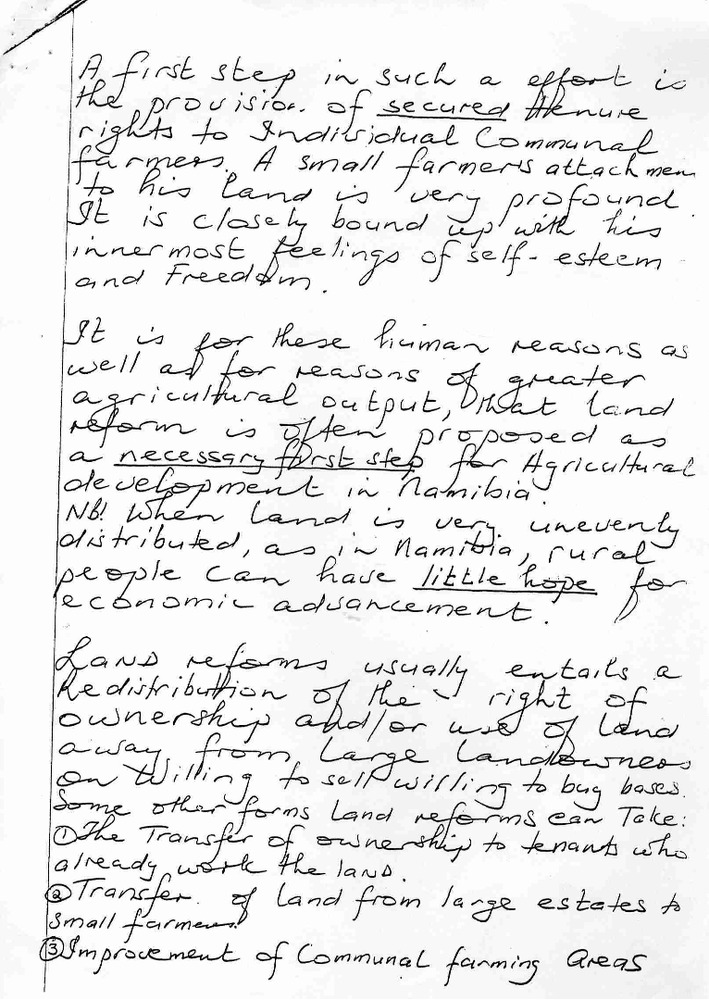 A first step in such a effort is
the provision. of secured tenure
rights to Individual Communal
farmers. A small farmers attachmen
to his land is very profound
It is closely bound up with his
innermost feelings of self-esteem
and Freedom.
It is for these human reasons as
well as for reasons of greater
agricultural output, that land
reform is often proposed as
a necessary first step for Agricultural
development in Namibia.
NB! When land is very unevenly
distributed, as in Namibia, rural
people can have little hope for
economic advancement.
Land reforms usually entails a
Redistribution of the right of
ownership and/or use of land
away from large landowners
on Willing to sell willing to buy bases.
Some other forms Land reforms can Take:
① The Transfer of ownership to tenants who
already work the land.
② Transfer. of land from large estates to
small farmers.
③ Improvement of Communal farming Areas